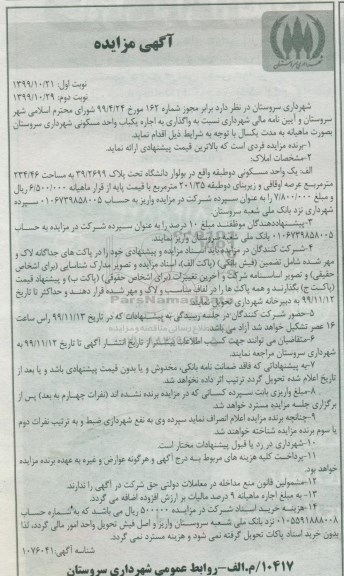 آگهی مزایده
نوبت اول: ۱۳۹۹/۱۰/۲۱
نوبت دوم: ۱۳۹۹/۱۰/۲۹
شهرداری سروستان در نظر دارد برابر مجوز شماره ۱۶۲ مورخ ۹۹/۴/۲۴ شورای محترم اسلامی شهر
سروستان و آیین نامه مالی شهرداری نسبت به واگذاری به اجاره یکباب واحد مسکونی شهرداری سروستان
بصورت ماهیانه به مدت یکسال با توجه به شرایط ذیل اقدام نماید.
۱-برنده مزایده فردی است که بالاترین قیمت پیشنهادی ارائه نماید.
۲-مشخصات املاک:
الف: یک واحد مسکونی دوطبقه واقع در بولوار دانشگاه تحت پلاک ۳۹/۲۶۹۹ به مساحت ۲۳۴/۴۶
مترمربع عرصه اوقافی و زیربنای دوطبقه ۲۰۱/۳۵ مترمربع با قیمت پایه از قرار ماهیانه ۶/۵۰۰/۰۰۰ ریال
و مبلغ ۷/۸۰۰/۰۰۰ را به عنوان سپرده شرکت در مزایده واریز به حساب ۰۱۰۶۷۳۹۸۵۸۰۰۵ سپرده
شهرداری نزد بانک ملی شعبه سروستان.
۳-پیشنهاددهندگان موظفند مبلغ ۱۰ درصد را به عنوان سپرده شرکت در مزایده به حساب
۰۱۰۶۷۳۹۸۵۸۰۰۵ بانک ملی شعبه سروستان واریز نمایند.
۴-شرکت کنندگان در مزایده باید اسناد مزایده و پیشنهادی خود را در پاکت های جداگانه لاک و
مهر شده شامل تضمین (فیش بانکی) (پاکت الف)، اسناد مزایده و تصویر مدارک شناسایی (برای اشخاص
حقیقی) و تصویر اساسنامه شرکت و آخرین تغییرات (برای اشخاص حقوقی) (پاکت ب) و پیشنهاد قیمت
(پاکت ج) بگذارند و همه پاکت ها را در لفاف مناسب و لاک و مهر شده قرار دهند و حداکثر تا تاریخ
۹۹/۱۱/۱۲ به دبیرخانه شهرداری تحویل
۵-حضور شرکت کنندگان در جلسه رسیدگی به پیشنهادات که در تاریخ ۹۹/۱۱/۱۳ راس ساعت
۱۶ عصر تشکیل خواهد شد آزاد می باشد.
۶-متقاضیان می توانند جهت کسب اطلاعات بیشتر از تاریخ انتشار آگهی تا تاریخ ۹۹/۱۱/۱۲ به
شهرداری سروستان مراجعه نمایند.
۷-به پیشنهاداتی که فاقد ضمانت نامه بانکی، مخدوش و یا بدون قیمت پیشنهادی باشد و یا بعد از
تاریخ اعلام شده تحویل گردد ترتیب اثر داده نخواهد شد.
۸-مبلغ واریزی بابت سپرده کسانی که در مزایده برنده نشده اند (نفرات چهارم به بعد) پس از
برگزاری جلسه مزایده مسترد خواهد شد.
۹-چنانچه برنده مزایده اعلام انصراف نماید سپرده وی به نفع شهرداری ضبط و به ترتیب نفرات دوم
یا سوم برنده مزایده شناخته خواهند شد
۱۰-شهرداری در رد یا قبول پیشنهادات مختار است
۱۱-پرداخت کلیه هزینه های مربوط به درج آگهی و هرگونه عوارض و غیره به عهده برنده مزایده
خواهد بود.
۱۲-مشمولین قانون منع مداخله در معاملات دولتی حق شرکت در آگهی را ندارند.
۱۳- به مبلغ اجاره ماهیانه ۹ درصد مالیات بر ارزش افزوده اضافه می گردد.
۱۴-هزینه خرید اسناد شرکت در مزایده ۵۰۰۰۰۰ ریال می باشد که به شماره حساب
۰۱۰۵۵۹۱۸۸۸۰۰۸ نزد بانک ملی شعبه سروستان واریز و اصل فیش تحویل واحد امور مالی گردد، لذا
بدون خرید اسناد پاکات تحویل گرفته نمی شود و هزینه مسترد نمی گردد.
شناسه آگهی: ۱۰۷۶۰۴۱
۱۰۴۱۷/م.الف-روابط عمومی شهرداری سروستان